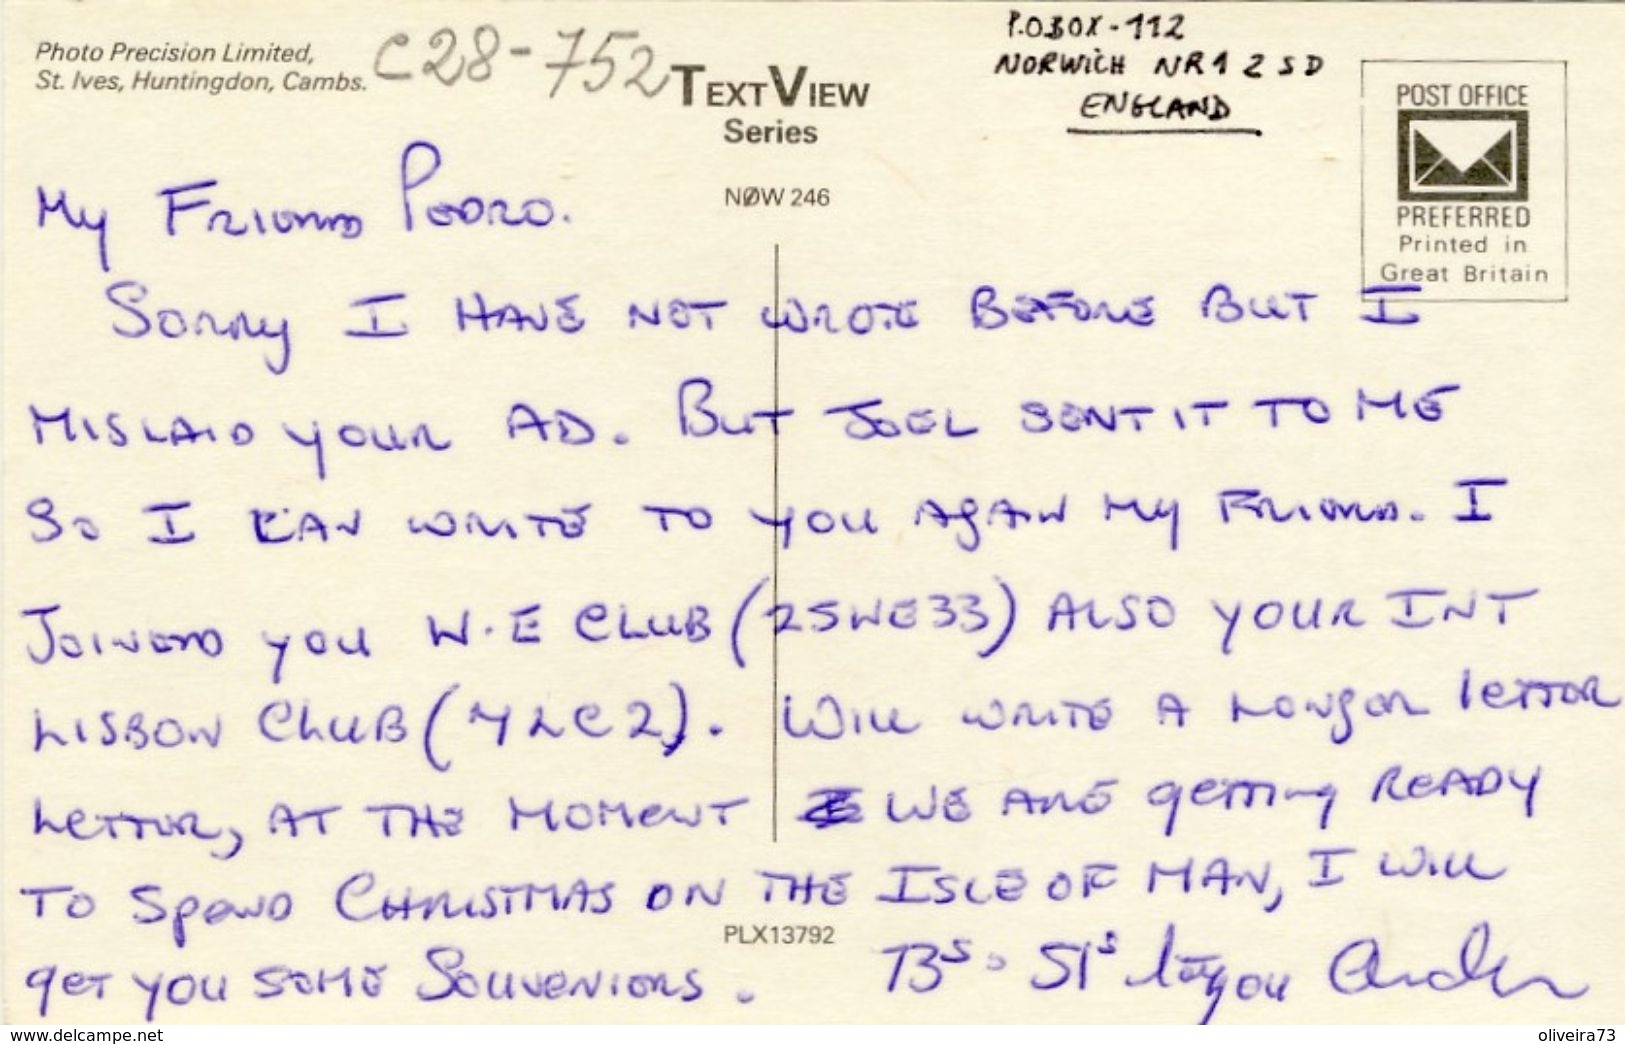 Photo Precision Limited,
St. Ives, Huntingdon, Cambs.
C28-752
TEXTVIEW
Series
NØW 246
P.O BOX-112
NORWiCH NR1 2SD
ENGLAND
POST OFFICE
PREFERRED
Printed in
Great Britain
My FRIEND PEDRO.
SORRy I HAVE NOT WROTE BEFORE BUT I
MISLAID YOUR AD. BUT JOEL SENT IT TO ME
SO I CAN WRITE TO YOU AGAIN My FRIEND. I
JOINED YOU W.E CLUB (25WE33) ALSO YOUR INT
LISBON CLUB ( LC2). WILL WRITE A LONGER LETTER
LETTER, AT THE MOMENT WE ARE GETTING READY
TO SPEND CHRISTMAS ON THE ISLE OF MAN, I WILL
GET YOU SOME SOUVENIORS. 73s 51s to you
PLX13792
www.delcampe.net
oliveira73